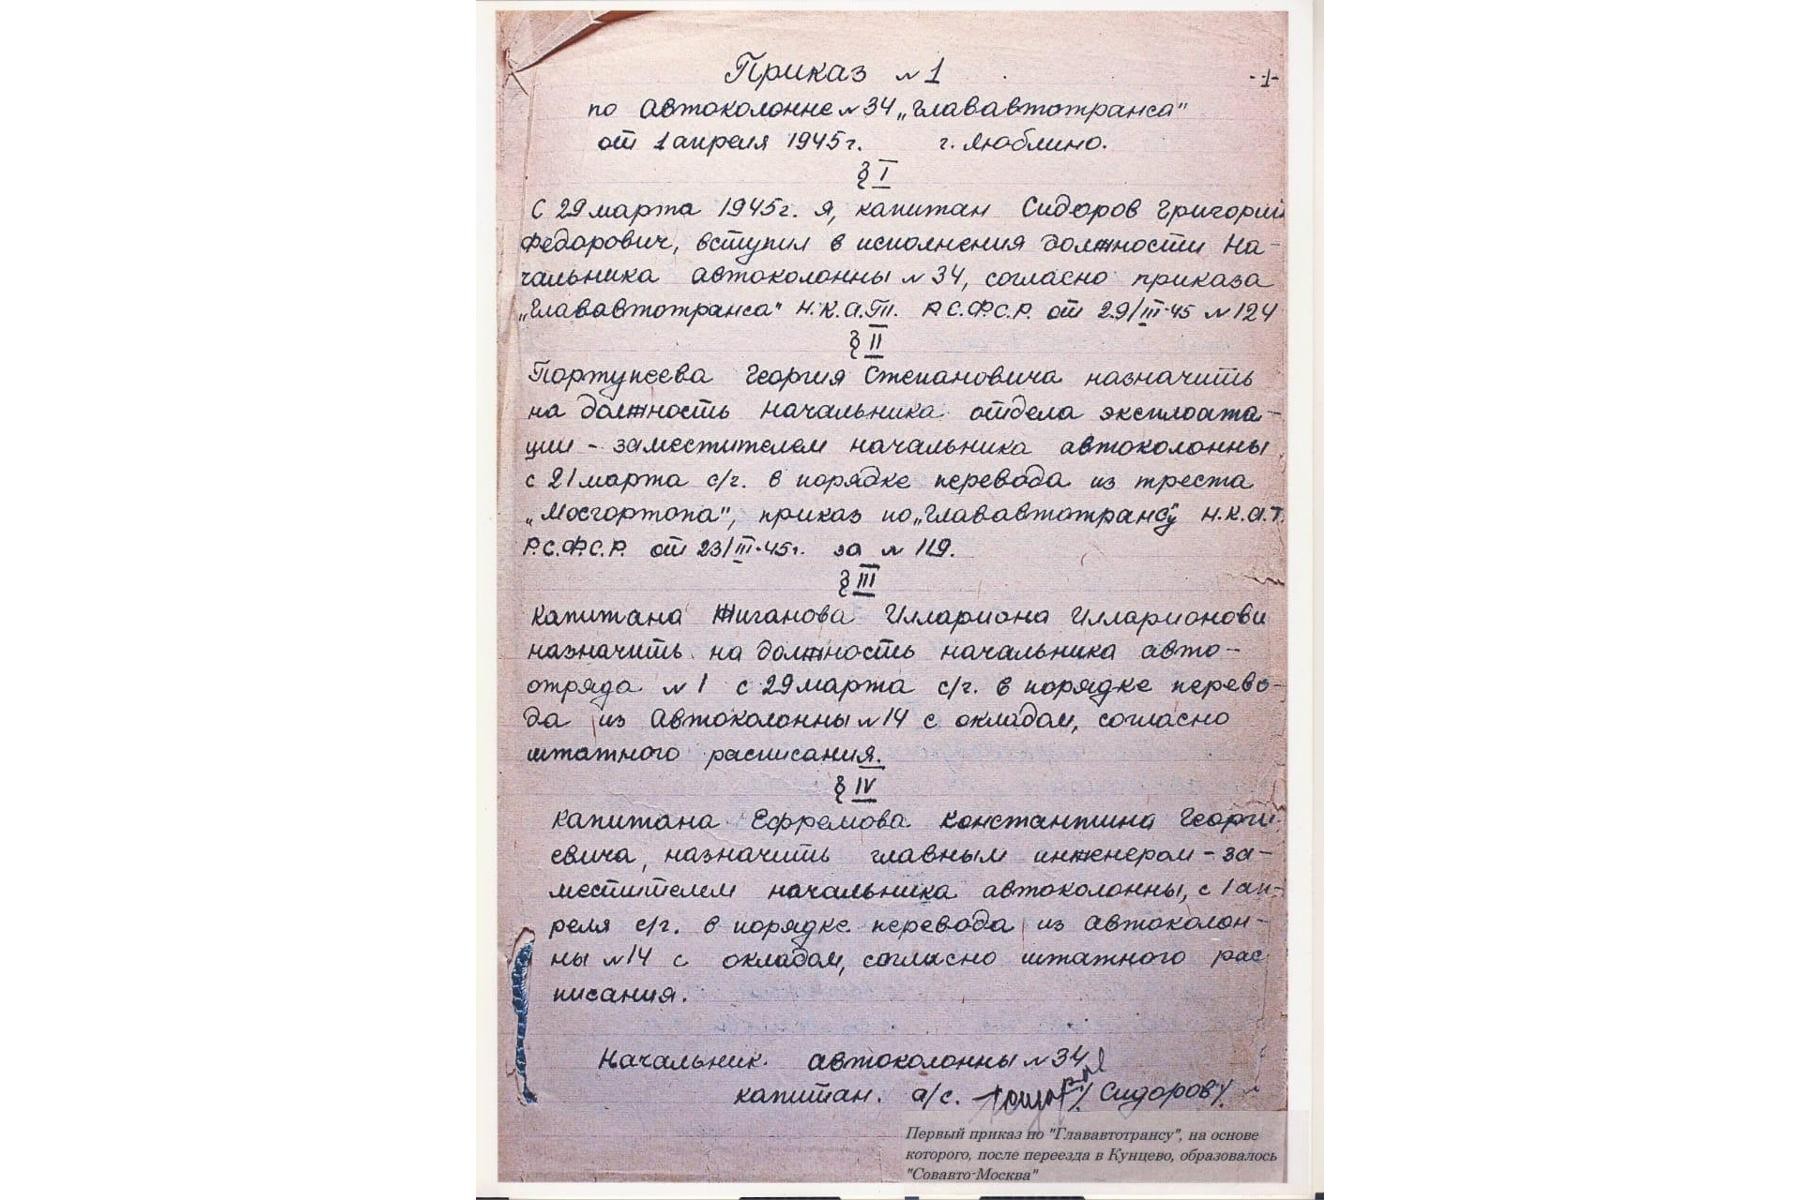 Приказ № 1
-1-
по автоколонне № 34 „Глававтотранса"
от 1 апреля 1945 г. г. Люблино.
§ I
С 29 марта 1945 г. я, капитан Сидоров Григорий
Федорович, вступил в исполнения должности На-
чальника автоколонны № 34, согласно приказа
„Глававтотранса" Н.К.А.Т. Р.С.Ф.С.Р. от 29/III-45 № 124
§ II
Портупеева Георгия Степановича назначить
на должность начальника отдела эксплоата-
ции - заместителем начальника автоколонны
с 21 марта с/г. в порядке перевода из треста
„Мосгортопа", приказ по „Глававтотрансу" Н.К.А.Т.
Р.С.Ф.С.Р. от 23/III-45 г. за № 119.
§ III
Капитана Жиганова Иллариона Илларионови
назначить на должность начальника авто-
отряда № 1 с 29 марта с/г. в порядке перево-
да из автоколонны № 14 с окладом, согласно
штатного расписания.
§ IV
Капитана Ефремова Константина Георги
евича, назначить главным инженером - за-
местителем начальника автоколонны, с 1 ап-
реля с/г. в порядке перевода из автоколон-
ны № 14 с окладом, согласно штатного рас
писания.
Начальник автоколонны № 34
капитан. а/с. /Сидоров/.
Первый приказ по "Глававтотрансу", на основе
которого, после переезда в Кунцево, образовалось
"Совавто-Москва"